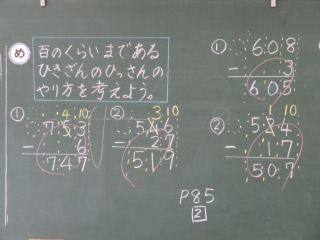 め
百のくらいまである
ひきざんのひっさんの
やり方を考えよう。
① 4 10
753
- 6
747
② 3 10
546
- 27
519
① 608
- 3
605
② 10
524
- 17
507
P85
2